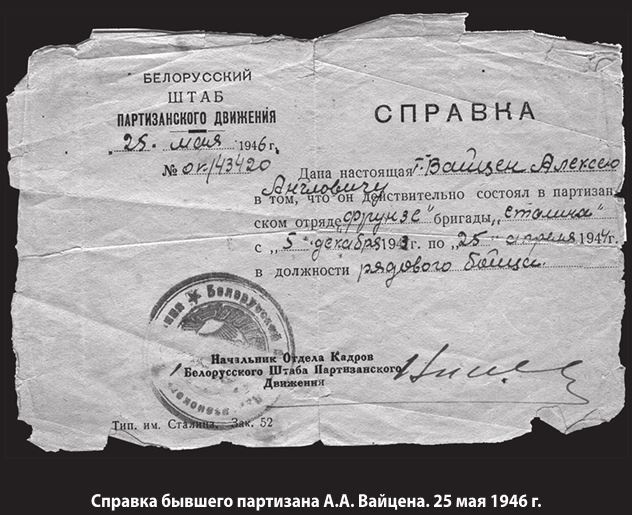 БЕЛОРУССКИЙ
ШТАБ
ПАРТИЗАНСКОГО ДВИЖЕНИЯ
„25„ мая 1946 г.
№ ок/43420
СПРАВКА
Дана настоящая т. Вайцен Алексею
Англовичу
в том, что он действительно состоял в партизан-
ском отряде „Фрунзе" бригады „Сталина"
с „5" декабря 1943 г. по „25" апреля 1944 г.
в должности рядового бойца
Белорусской
Начальник Отдела Кадров
Белорусского Штаба Партизанского
Движения
Тип. им. Сталина. Зак. 52
Справка бывшего партизана А.А. Вайцена. 25 мая 1946 г.